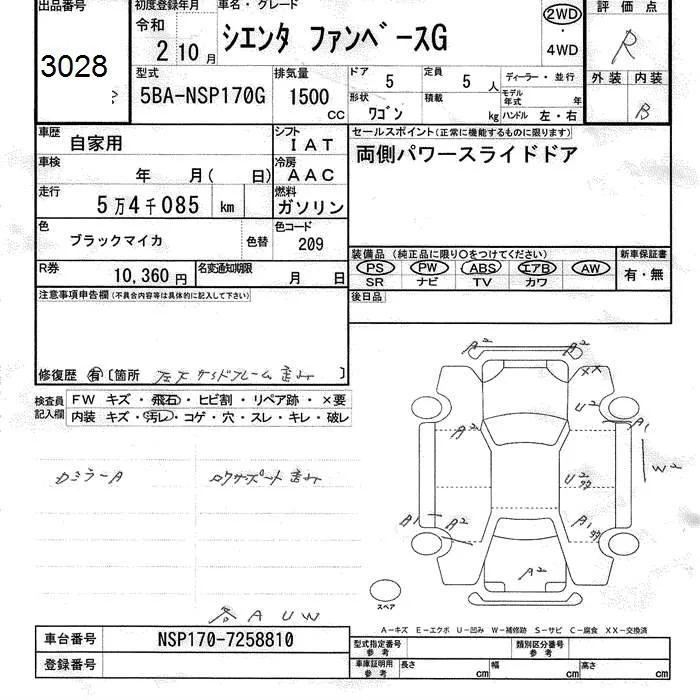 出品番号 初度登録年月 車名・グレード 2WD 評価点
令和 シエンタ ファンベースG ・ R
2 10 月 4WD
3028 型式 排気量 ドア 5 定員 5 人 ディーラー・並行 外装 内装
5BA-NSP170G 1500 CC 形状 ワゴン 積載 kg モデル年式 年 B
ハンドル 左・右
車歴 自家用 シフト IAT セールスポイント(正常に機能するものに限ります)
車検 年 月( 日) 冷房 AAC 両側パワースライドドア
走行 5万4千085 km 燃料 ガソリン
色 ブラックマイカ 色替 色コード 209
装備品(純正品に限り○をつけてください) 新車保証書
R券 10,360円 名変通知期限 月 日 PS PW ABS エアB AW 有・無
SR ナビ TV カワ
注意事項申告欄(不具合内容等は具体的に記入して下さい) 後日品
修復歴 有 〔箇所 〕
検査員記入欄 FW キズ・飛石・ヒビ割・リペア跡・×要
内装 キズ・汚レ・コゲ・穴・スレ・キレ・破レ
A2 A2
XX
U2
A2 A1
W2
U2
A1 A2 A1
A2
スペア
A U W
A-キズ E-エクボ U-凹み W-補修跡 S-サビ C-腐食 XX-交換済
車台番号 NSP170-7258810 型式指定番号 参考 類別区分番号 参考
登録番号 車庫証明用 参考 長さ cm 幅 cm 高さ cm